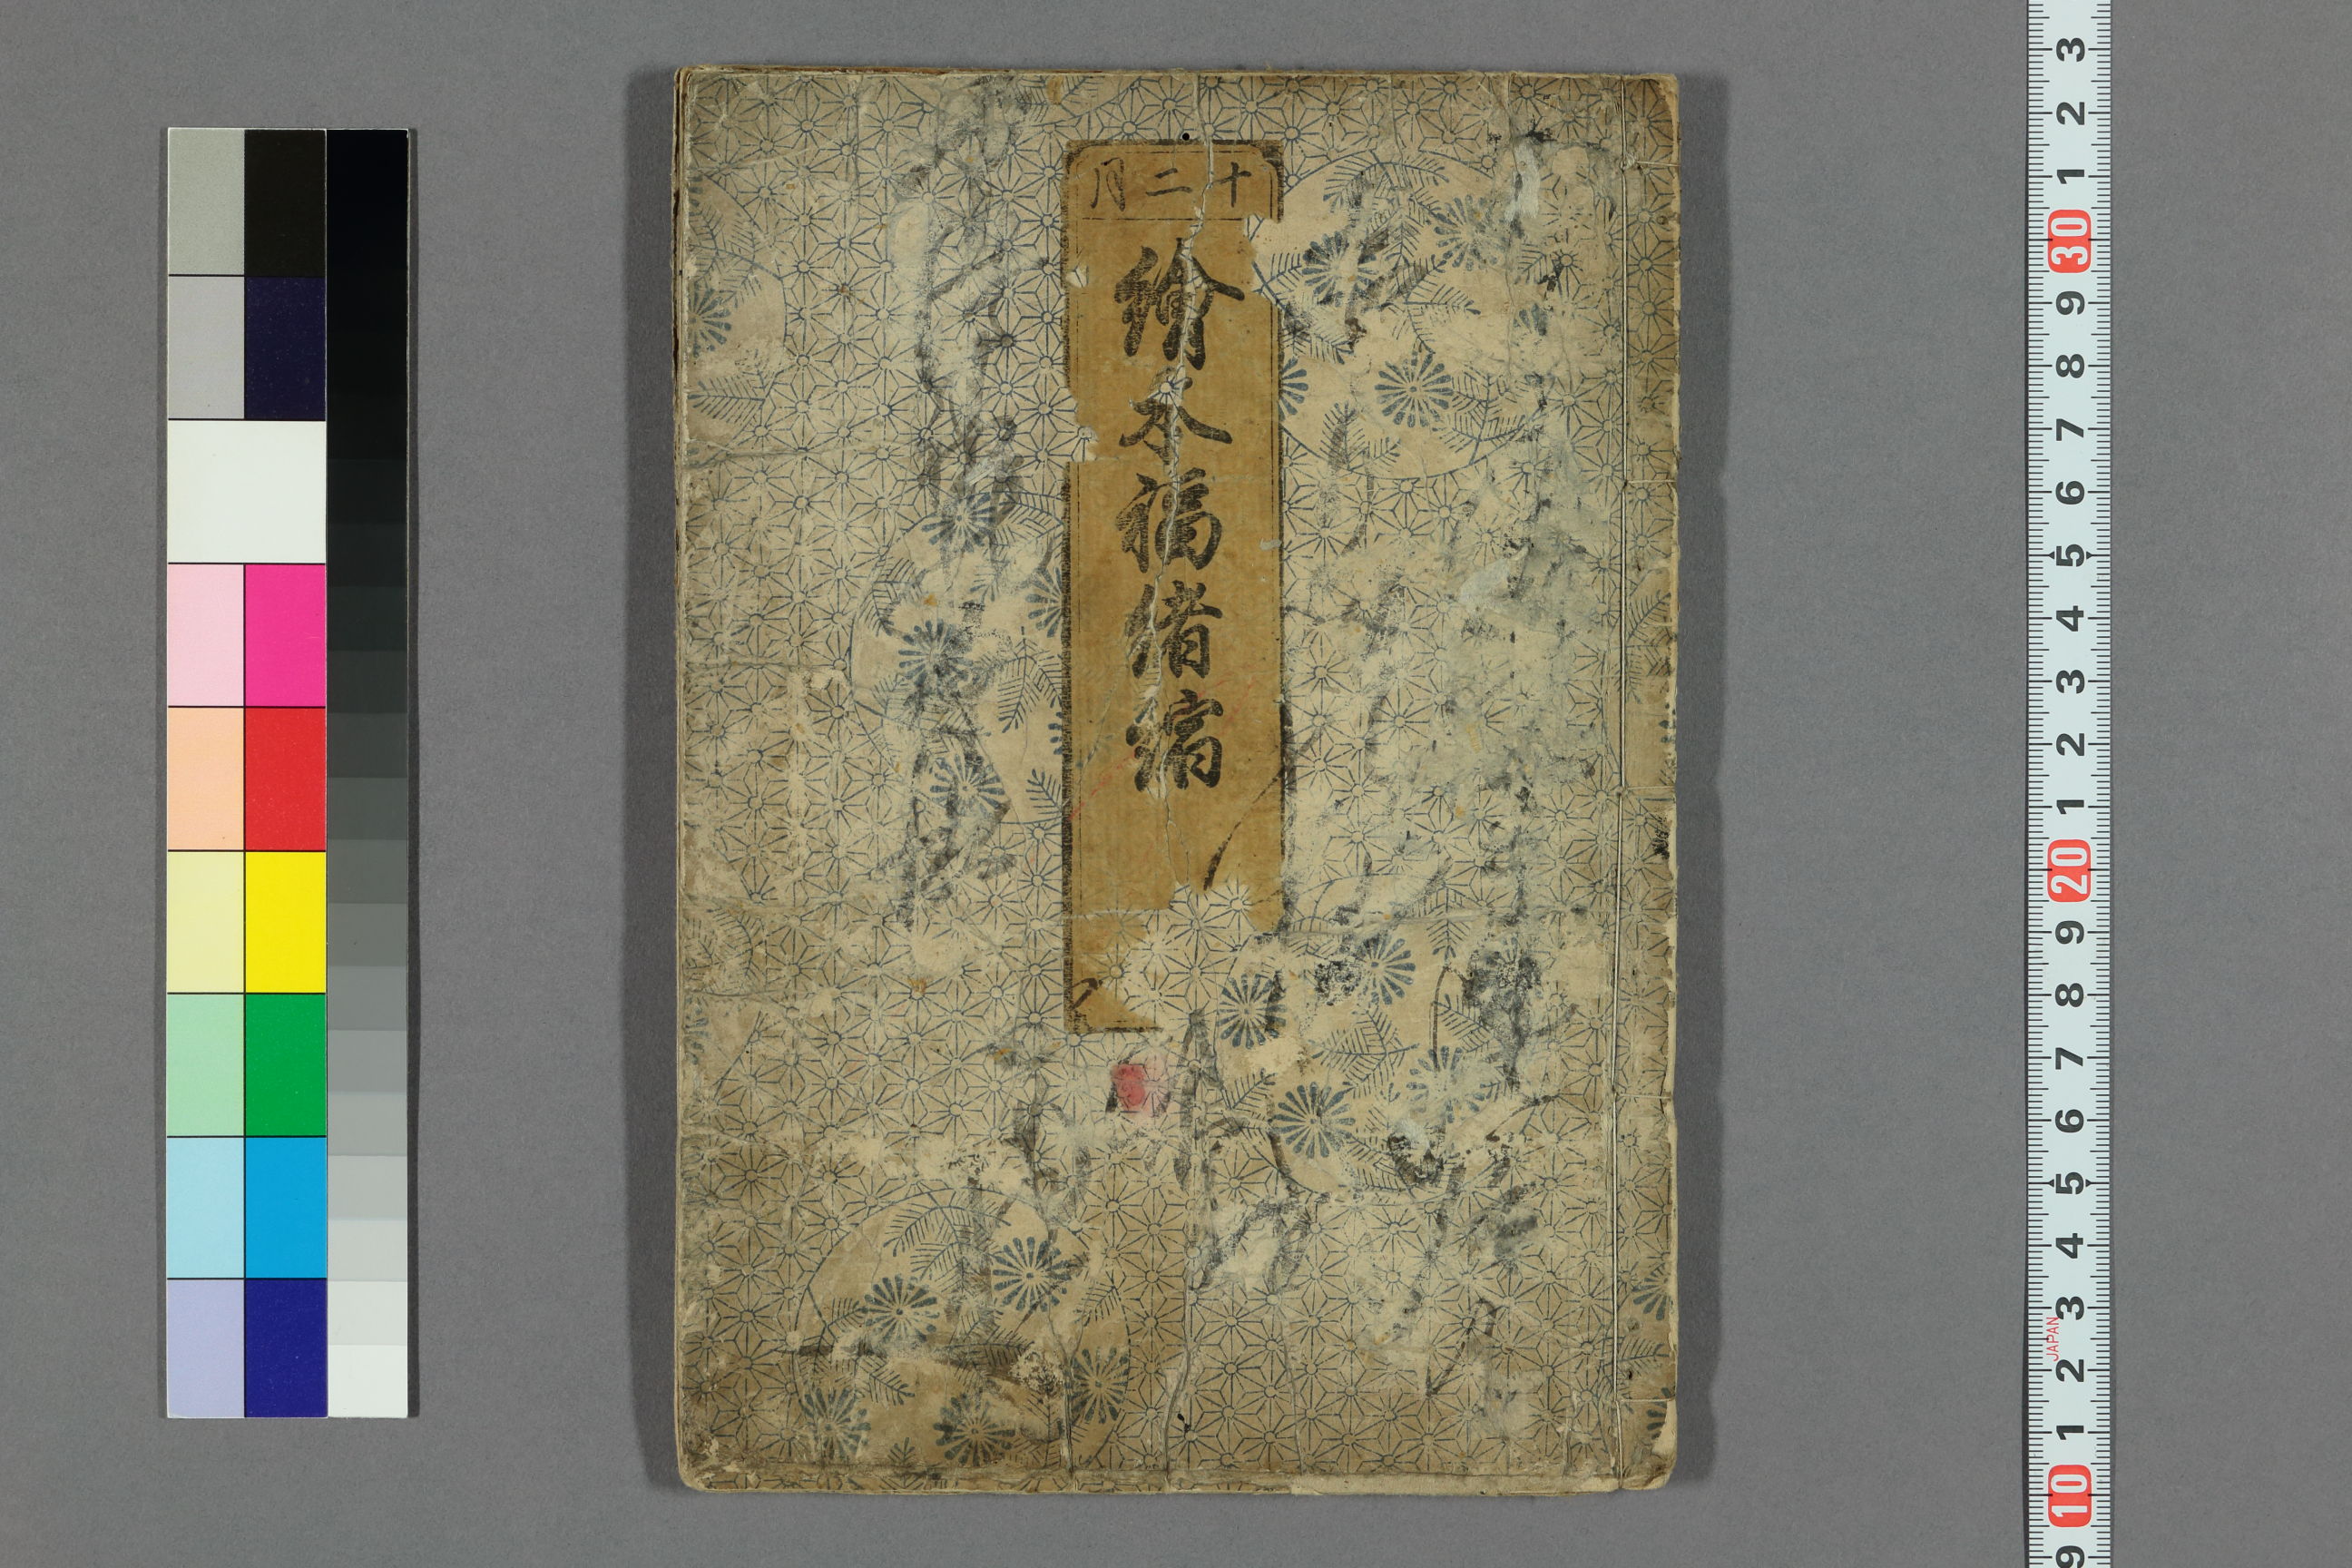 十二月
繪本福緒編
3
2
1
30
9
8
7
6
5
4
3
2
1
20
9
8
7
6
5
4
3
JAPAN
2
1
10
9